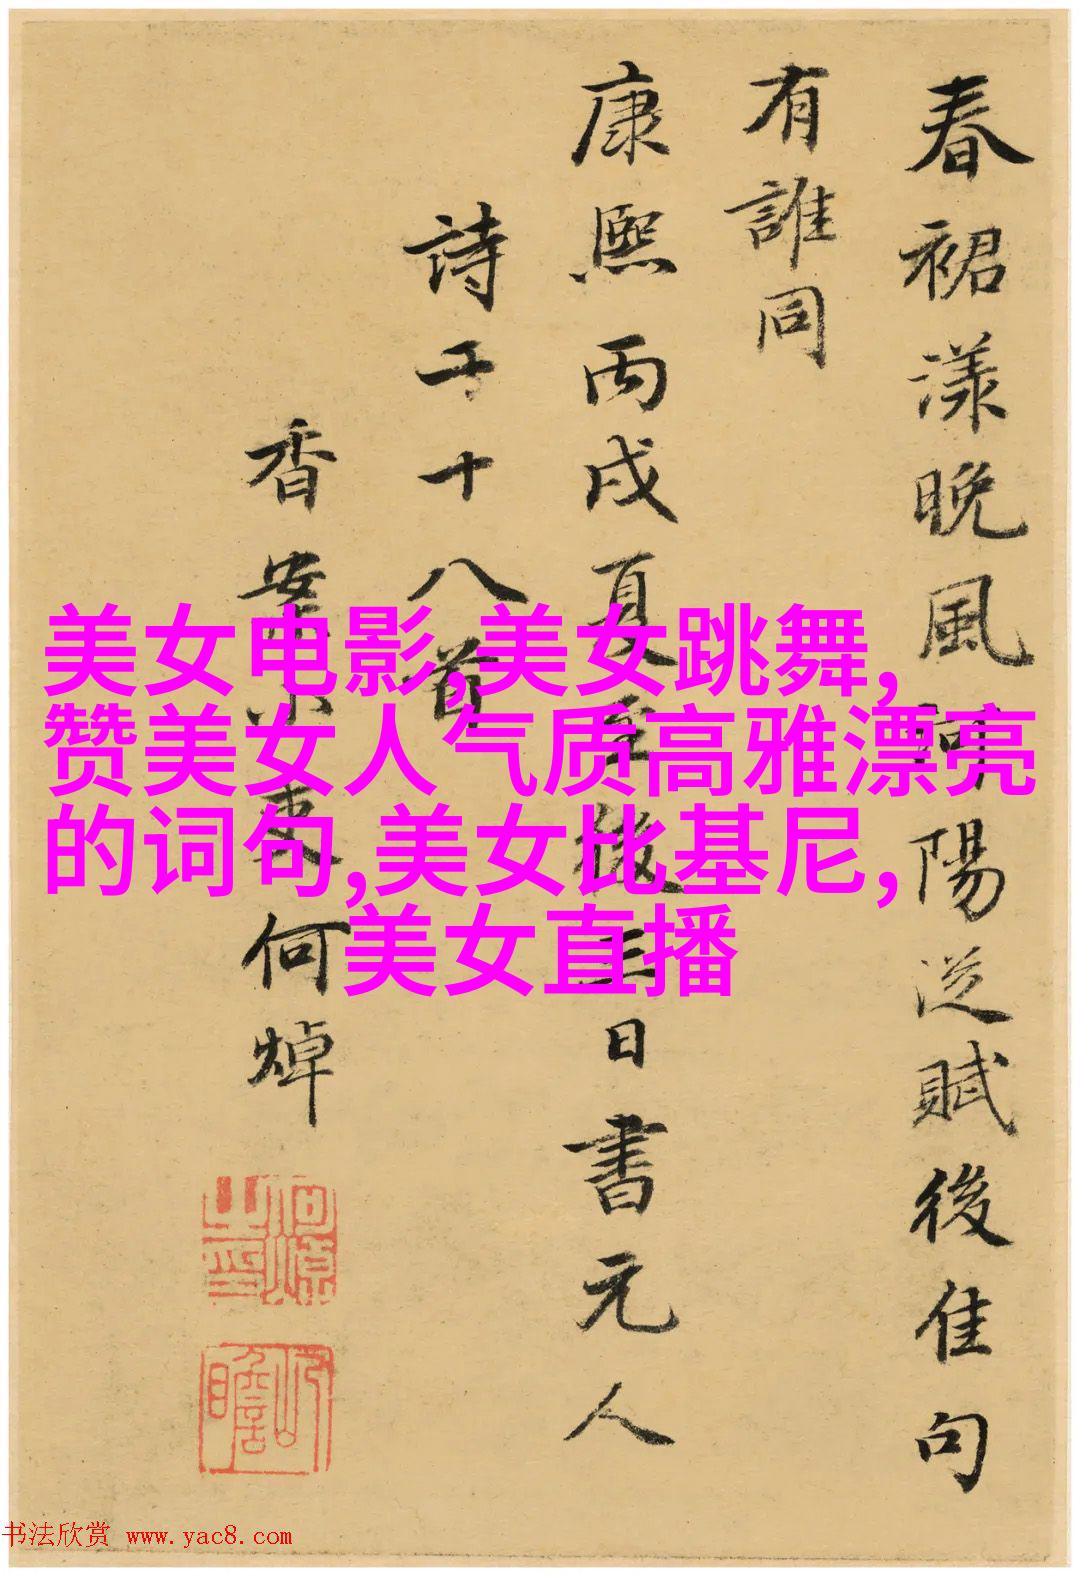 春裙漾晚風河陽從賦後佳句
有誰同
康熙丙戌夏至後三日書元人
詩五十八首
香案小吏何焯
美女电影,美女跳舞,
赞美女人气质高雅漂亮
的词句,美女比基尼,
美女直播
书法欣赏 www.yac8.com